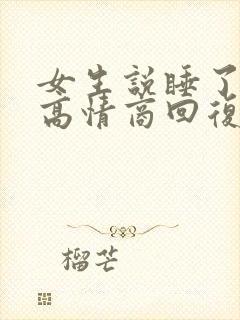 女生説睡了
高情商回復
榴芒